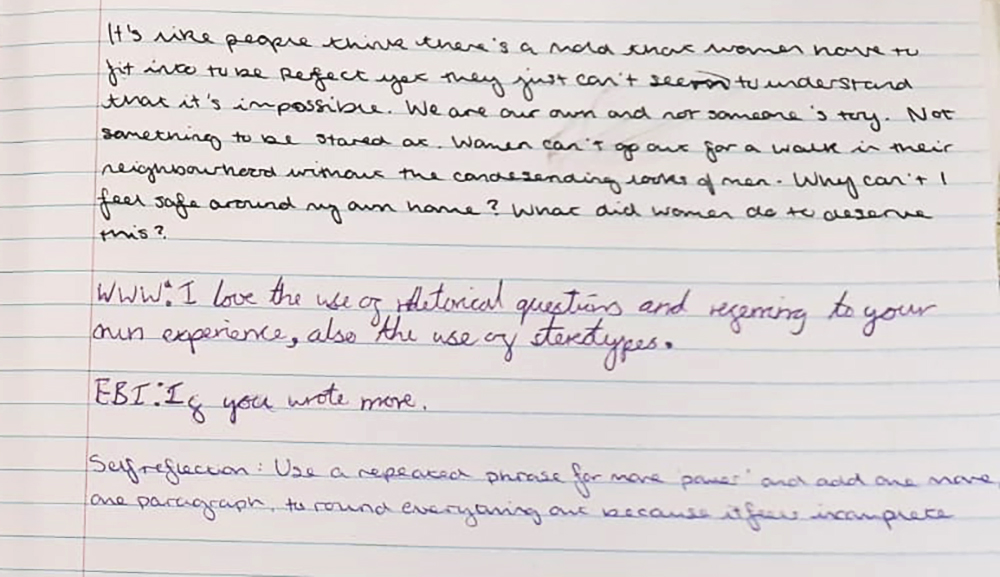 It's like people think there's a mold that women have to
fit into to be perfect yet they just can't seem to understand
that it's impossible. We are our own and not someone's toy. Not
something to be stared at. Women can't go out for a walk in their
neighbourhood without the condesending looks of men. Why can't I
feel safe around my own home? What did women do to deserve
this?
WWW: I love the use of rhetorical questions and referring to your
own experience, also the use of stereotypes.
EBI: If you wrote more.
Self reflection: Use a repeated phrase for more 'power' and add one more
one paragraph, to round everything out because it feels incomplete